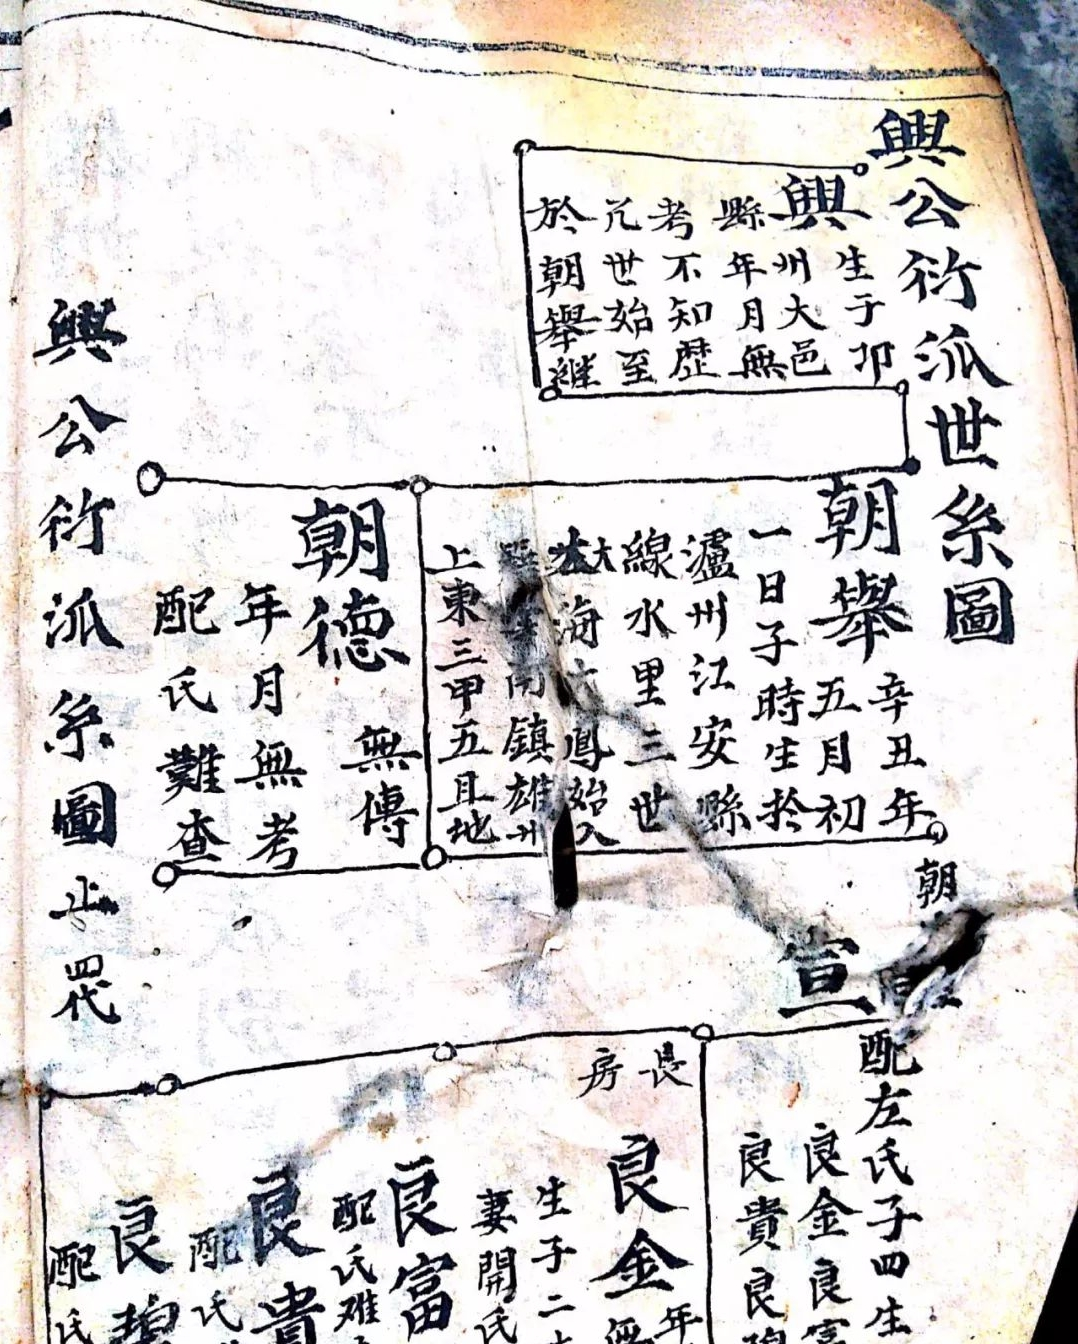 興公衍派世系圖
興
生于卬
州大邑
縣年月無
考不知歷
凡世始至
於朝舉継
朝舉
辛丑年
五月初
一日子時生於
瀘州江安縣
線水里三世
大海六鳳始入
南鎮雄州
上東三甲五且地
朝德
無傳
年月無考
配氏難查
朝
宣
配左氏子四生
良金良富
良貴良碧
長房
良金
年
無
生子二
妻開氏
良富
配氏难
良貴
配氏
良碧
配氏
興公衍派系圖止四代